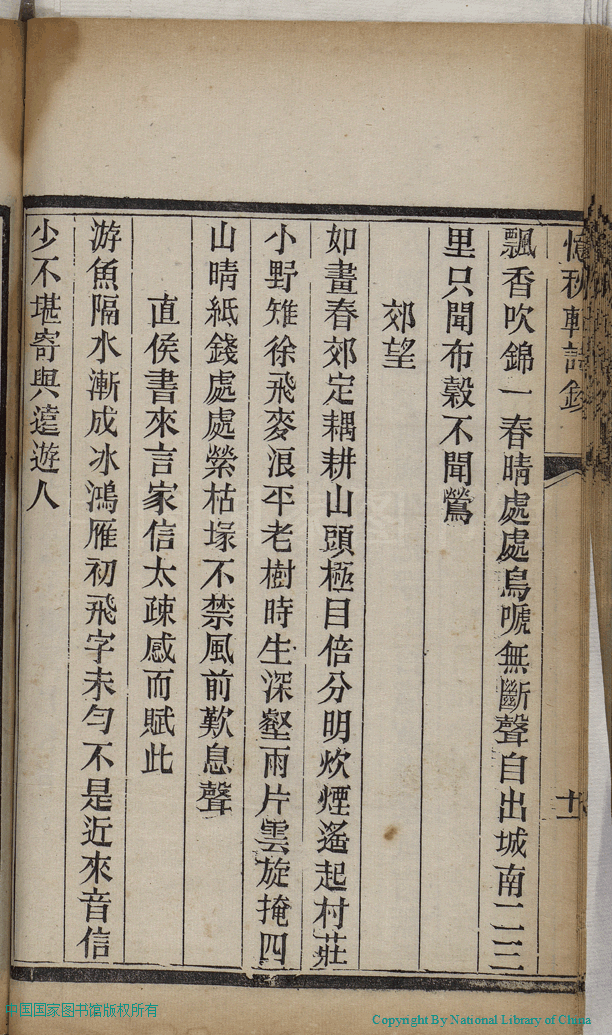 憶秋軒詩鈔
十一
飄香吹錦一春晴處處烏嗁無斷聲自出城南二三
里只聞布穀不聞鶯
郊望
如畫春郊定耦耕山頭極目倍分明炊煙遙起村莊
小野雉徐飛麥浪平老樹時生深壑雨片雲旋掩四
山晴紙錢處處縈枯塚不禁風前歎息聲
直侯書來言家信太疎感而賦此
游魚隔水漸成冰鴻雁初飛字未勻不是近來音信
少不堪寄與遠遊人
中国国家图书馆版权所有
Copyright By National Library of China